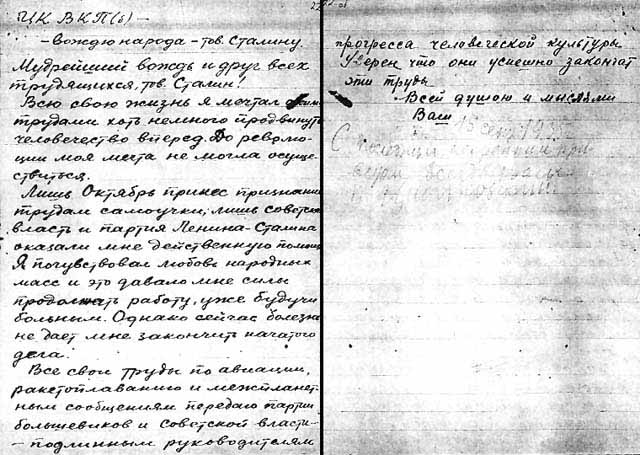 ЦК ВКП(б) –
– вождю народа – тов. Сталину.
Мудрейший вождь и друг всех
трудящихся, тов. Сталин!
Всю свою жизнь я мечтал
трудами хоть немного продвинуть
человечество вперед. До револю-
ции моя мечта не могла осуще-
ствиться.
Лишь Октябрь принес признание
трудам самоучки; лишь советская
власть и партия Ленина-Сталина
оказали мне действенную помощь
Я почувствовал любовь народных
масс и это давало мне силы
продолжать работу, уже будучи
больным. Однако сейчас болезнь
не дает мне закончить начатого
дела.
Все свои труды по авиации,
ракетоплаванию и межпланет-
ным сообщениям передаю партии
большевиков и Советской власти –
– подлинным руководителям
прогресса человеческой культуры.
Уверен что они успешно закончат
эти труды
Всей душою и мыслями
Ваш
С